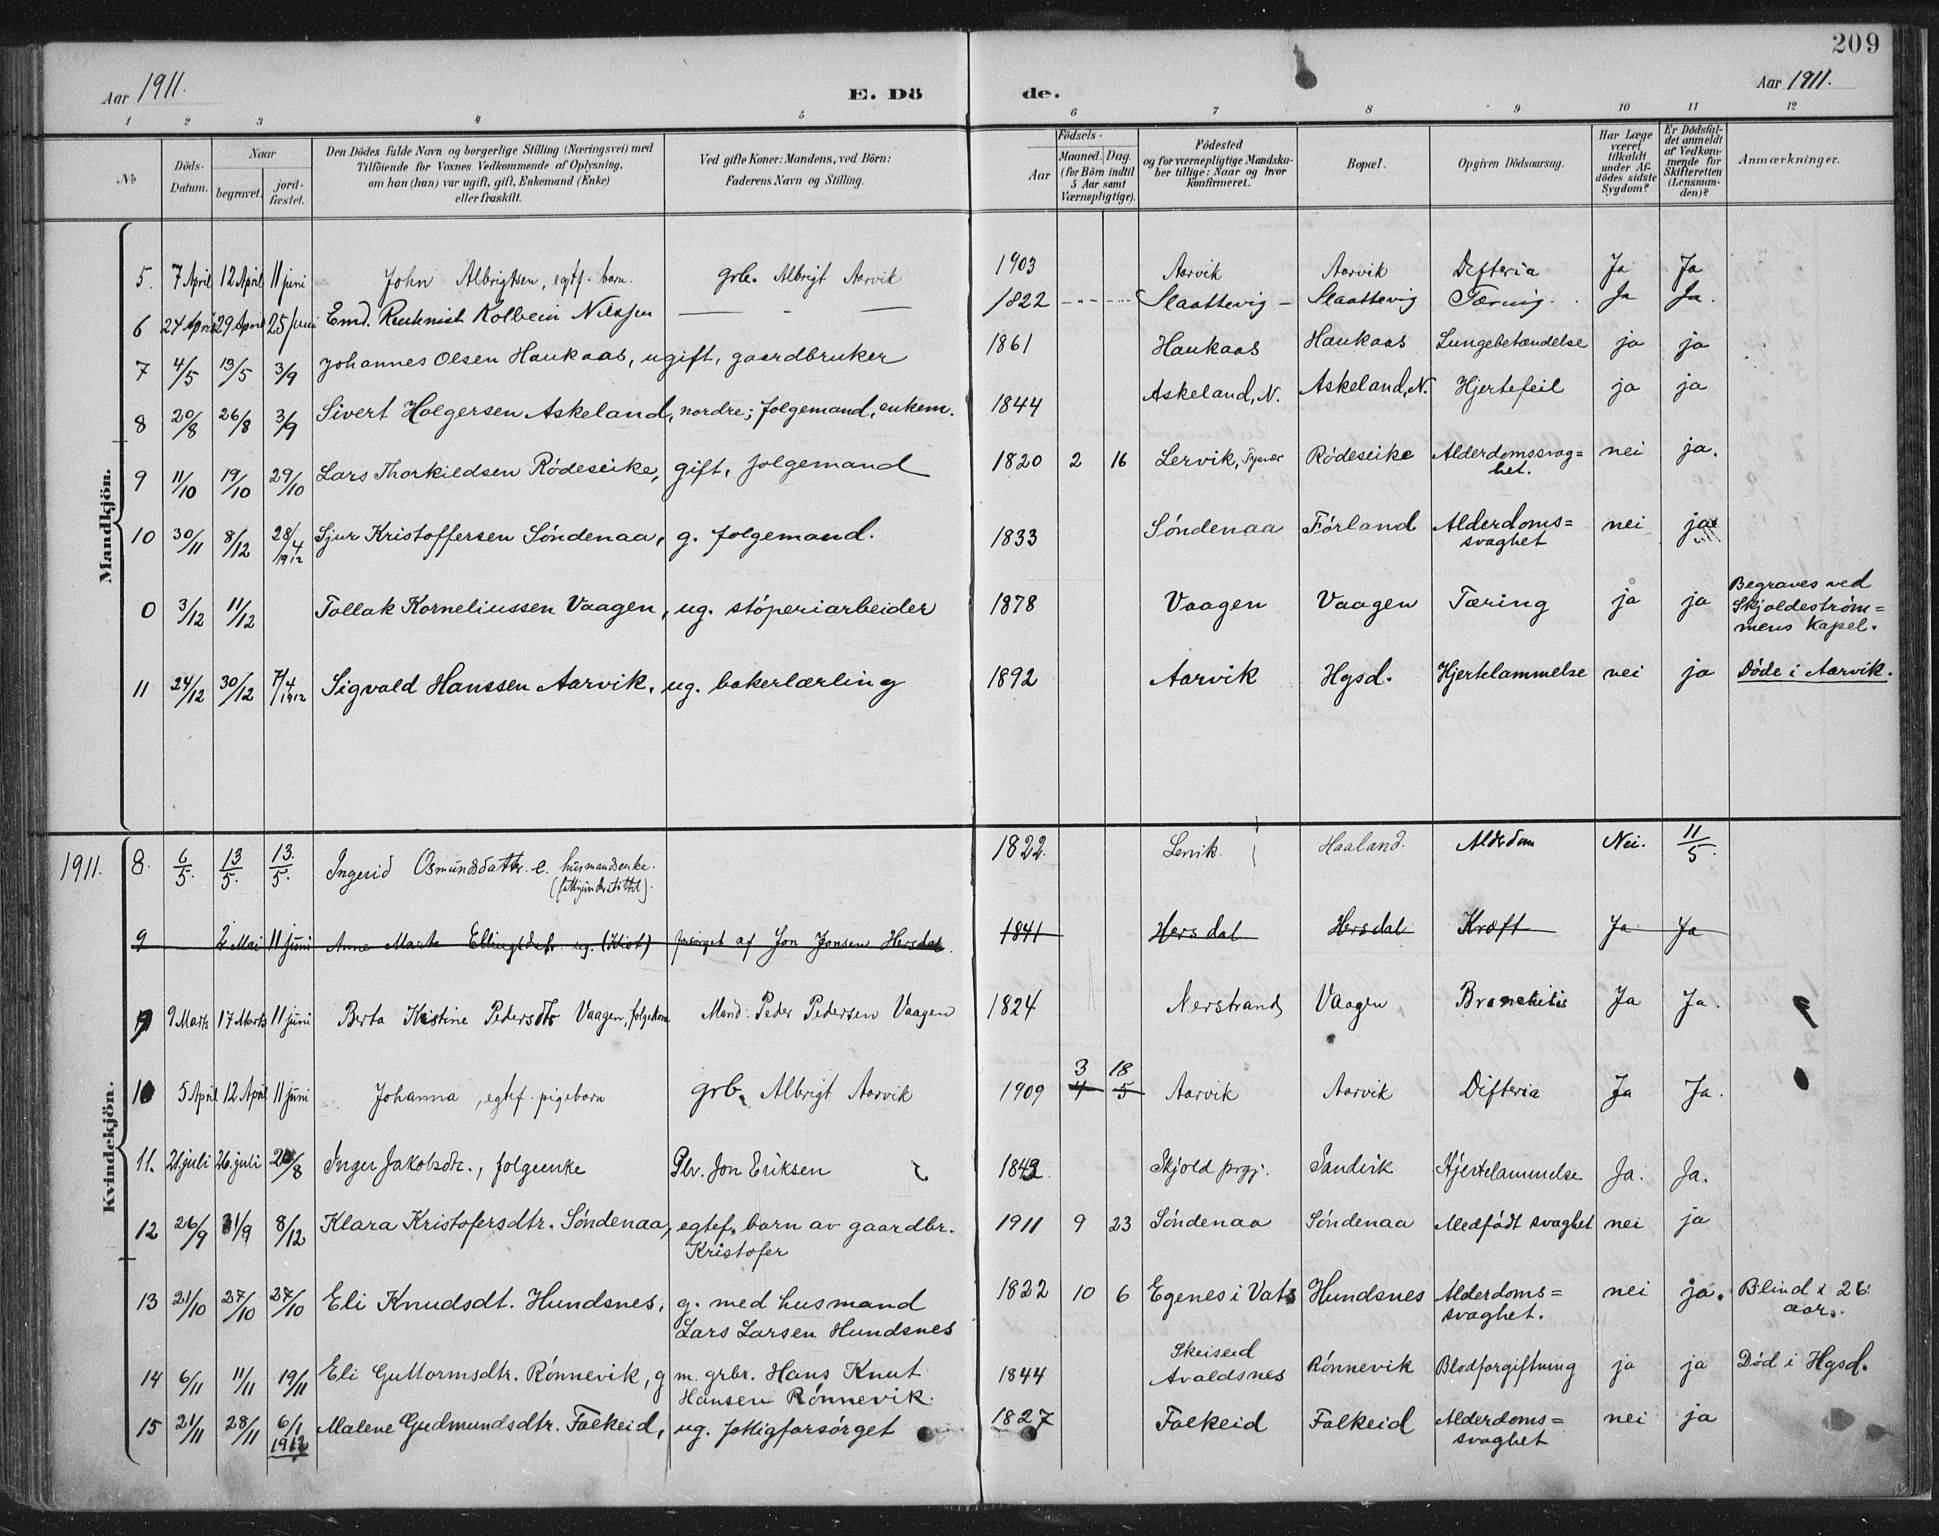 209
Aar 1911. E. Dö de. Aar 1911.
1 2 3 4 5 6 7 8 9 10 11 12
No Döds-Datum. Naar begravet. jord-fæstet. Den Dödes fulde Navn og borgerlige Stilling (Næringsvei) med Tilföiende for Voxnes Vedkommende af Oplysning, om han (hun) var ugift, gift, Enkemand (Enke) eller fraskilt. Ved gifte Koner: Mandens, ved Börn: Faderens Navn og Stilling. Födsels- Aar Maaned. Dag. (for Börn indtil 5 Aar samt Værnepligtige). Födested og for værnepligtige Mandskaber tillige: Naar og hvor konfirmeret. Bopæl. Opgiven Dödsaarsag. Har Læge været tilkaldt under Afdödes sidste Sygdom? Er Dödsfaldet anmeldt af Vedkommende for Skifteretten (Lensmanden)? Anmærkninger.
Mandkjön.
5. 7 April 12 April 11 juni John Albrigtsen, egtf. barn. grb. Albrigt Aarvik 1903 Aarvik Aarvik Difteria Ja Ja
6 24 April 29 April 25 juni Emd. Kolbein Nilssen 1822 Slaattevig Slaattevig Tæring. Ja Ja.
7 4/5 13/5 3/9 Johannes Olsen Haukaas, ugift, gaardbruker 1861 Haukaas Haukaas Lungebetændelse ja ja
8 20/8 26/8 3/9 Sivert Holgersen Askeland, nordre; folgemand, enkem. 1844 Askeland, N. Askeland, N. Hjertefeil ja ja
9 11/10 19/10 29/10 Lars Thorkildsen Rödeseike, gift, folgemand 1820 2 16 Lervik, Tysvær Rödeseike Alderdomssvag=
het. nei ja.
10 30/11 8/12 28/4 1912 Sjur Kristoffersen Söndenaa, g. folgemand. 1833 Söndenaa Förland Alderdoms=
svaghet nei ja
0 3/12 11/12 Tollak Korneliussen Vaagen, ug. stöperiarbeider 1878 Vaagen Vaagen Tæring ja ja Begraves ved
Skjoldeström=
mens Kapel.
11 24/12 30/12 7/4 1912 Sigvald Hanssen Aarvik, ug. bakerlærling 1892 Aarvik Hgsd. Hjertelammelse nei ja Döde i Aarvik.
Kvindekjön.
1911. 8. 6/5. 13/5. 13/5. Ingerid Osmundsdatter. e. husmandsenke.
1822. Lervik. Haaland. Alderdom Nei. 11/5.
9 2 Mai 11 juni Anne Marta Ellingsdtr. ug. (Idiot) forsörget af Jon Jonsen Hersdal. 1841 Hersdal Hersdal Kræft Ja Ja
9 9 Marts 17 Marts 11 juni Berta Kristine Pedersdtr Vaagen, folgekone Mand: Peder Pedersen Vaagen 1824 Nerstrand Vaagen Bronchitis Ja Ja.
10 5 April 12 April 11 juni Johanna, egtef. pigebarn grb. Albrigt Aarvik 1909 3 18
4 5 Aarvik Aarvik Difteria Ja Ja.
11. 21. juli 26. juli /8 Inger Jakobsdtr., folgeenke Plv. Jon Eriksen 1842 Skjold prgj. Sandvik Hjertelammelse Ja. Ja.
12 26/9 31/9 8/12 Klara Kristofersdtr. Söndenaa, egtef. barn av gaardbr.
Kristofer 1911 9 23 Söndenaa Söndenaa Medfödt svaghet nei ja
13 21/10 27/10 27/10 Eli Knudsdt. Hundsnes, g. med husmand
Lars Larsen Hundsnes 1822 10 6 Egenes i Vats Hundsnes Alderdoms=
svaghet. nei ja. Blind i 26
aar.
14 6/11 11/11 19/11 Eli Guttormsdtr. Rönnevik, g m. grbr. Hans Knut
Hansen Rönnevik. 1844 Skeiseid
Avaldsnes Rönnevik Blodforgiftning ja ja Död i Hgsd.
15 21/11 28/11 6/1 1912 Malene Gudmundsdtr. Falkeid, ug. fattigforsörget 1827 Falkeid Falkeid Alderdoms=
svaghet nei ja